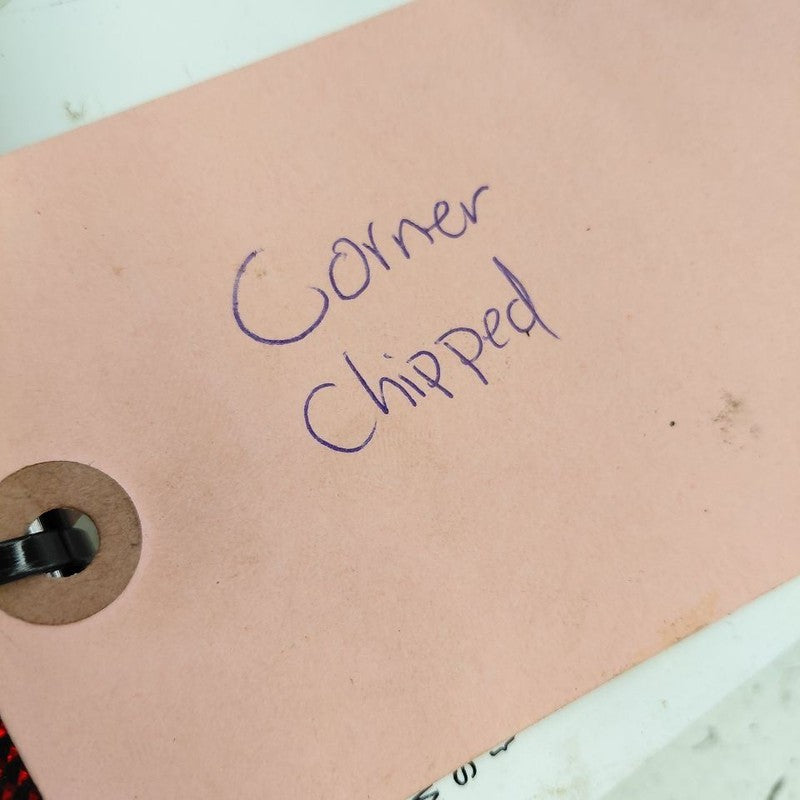 Corner
Chipped